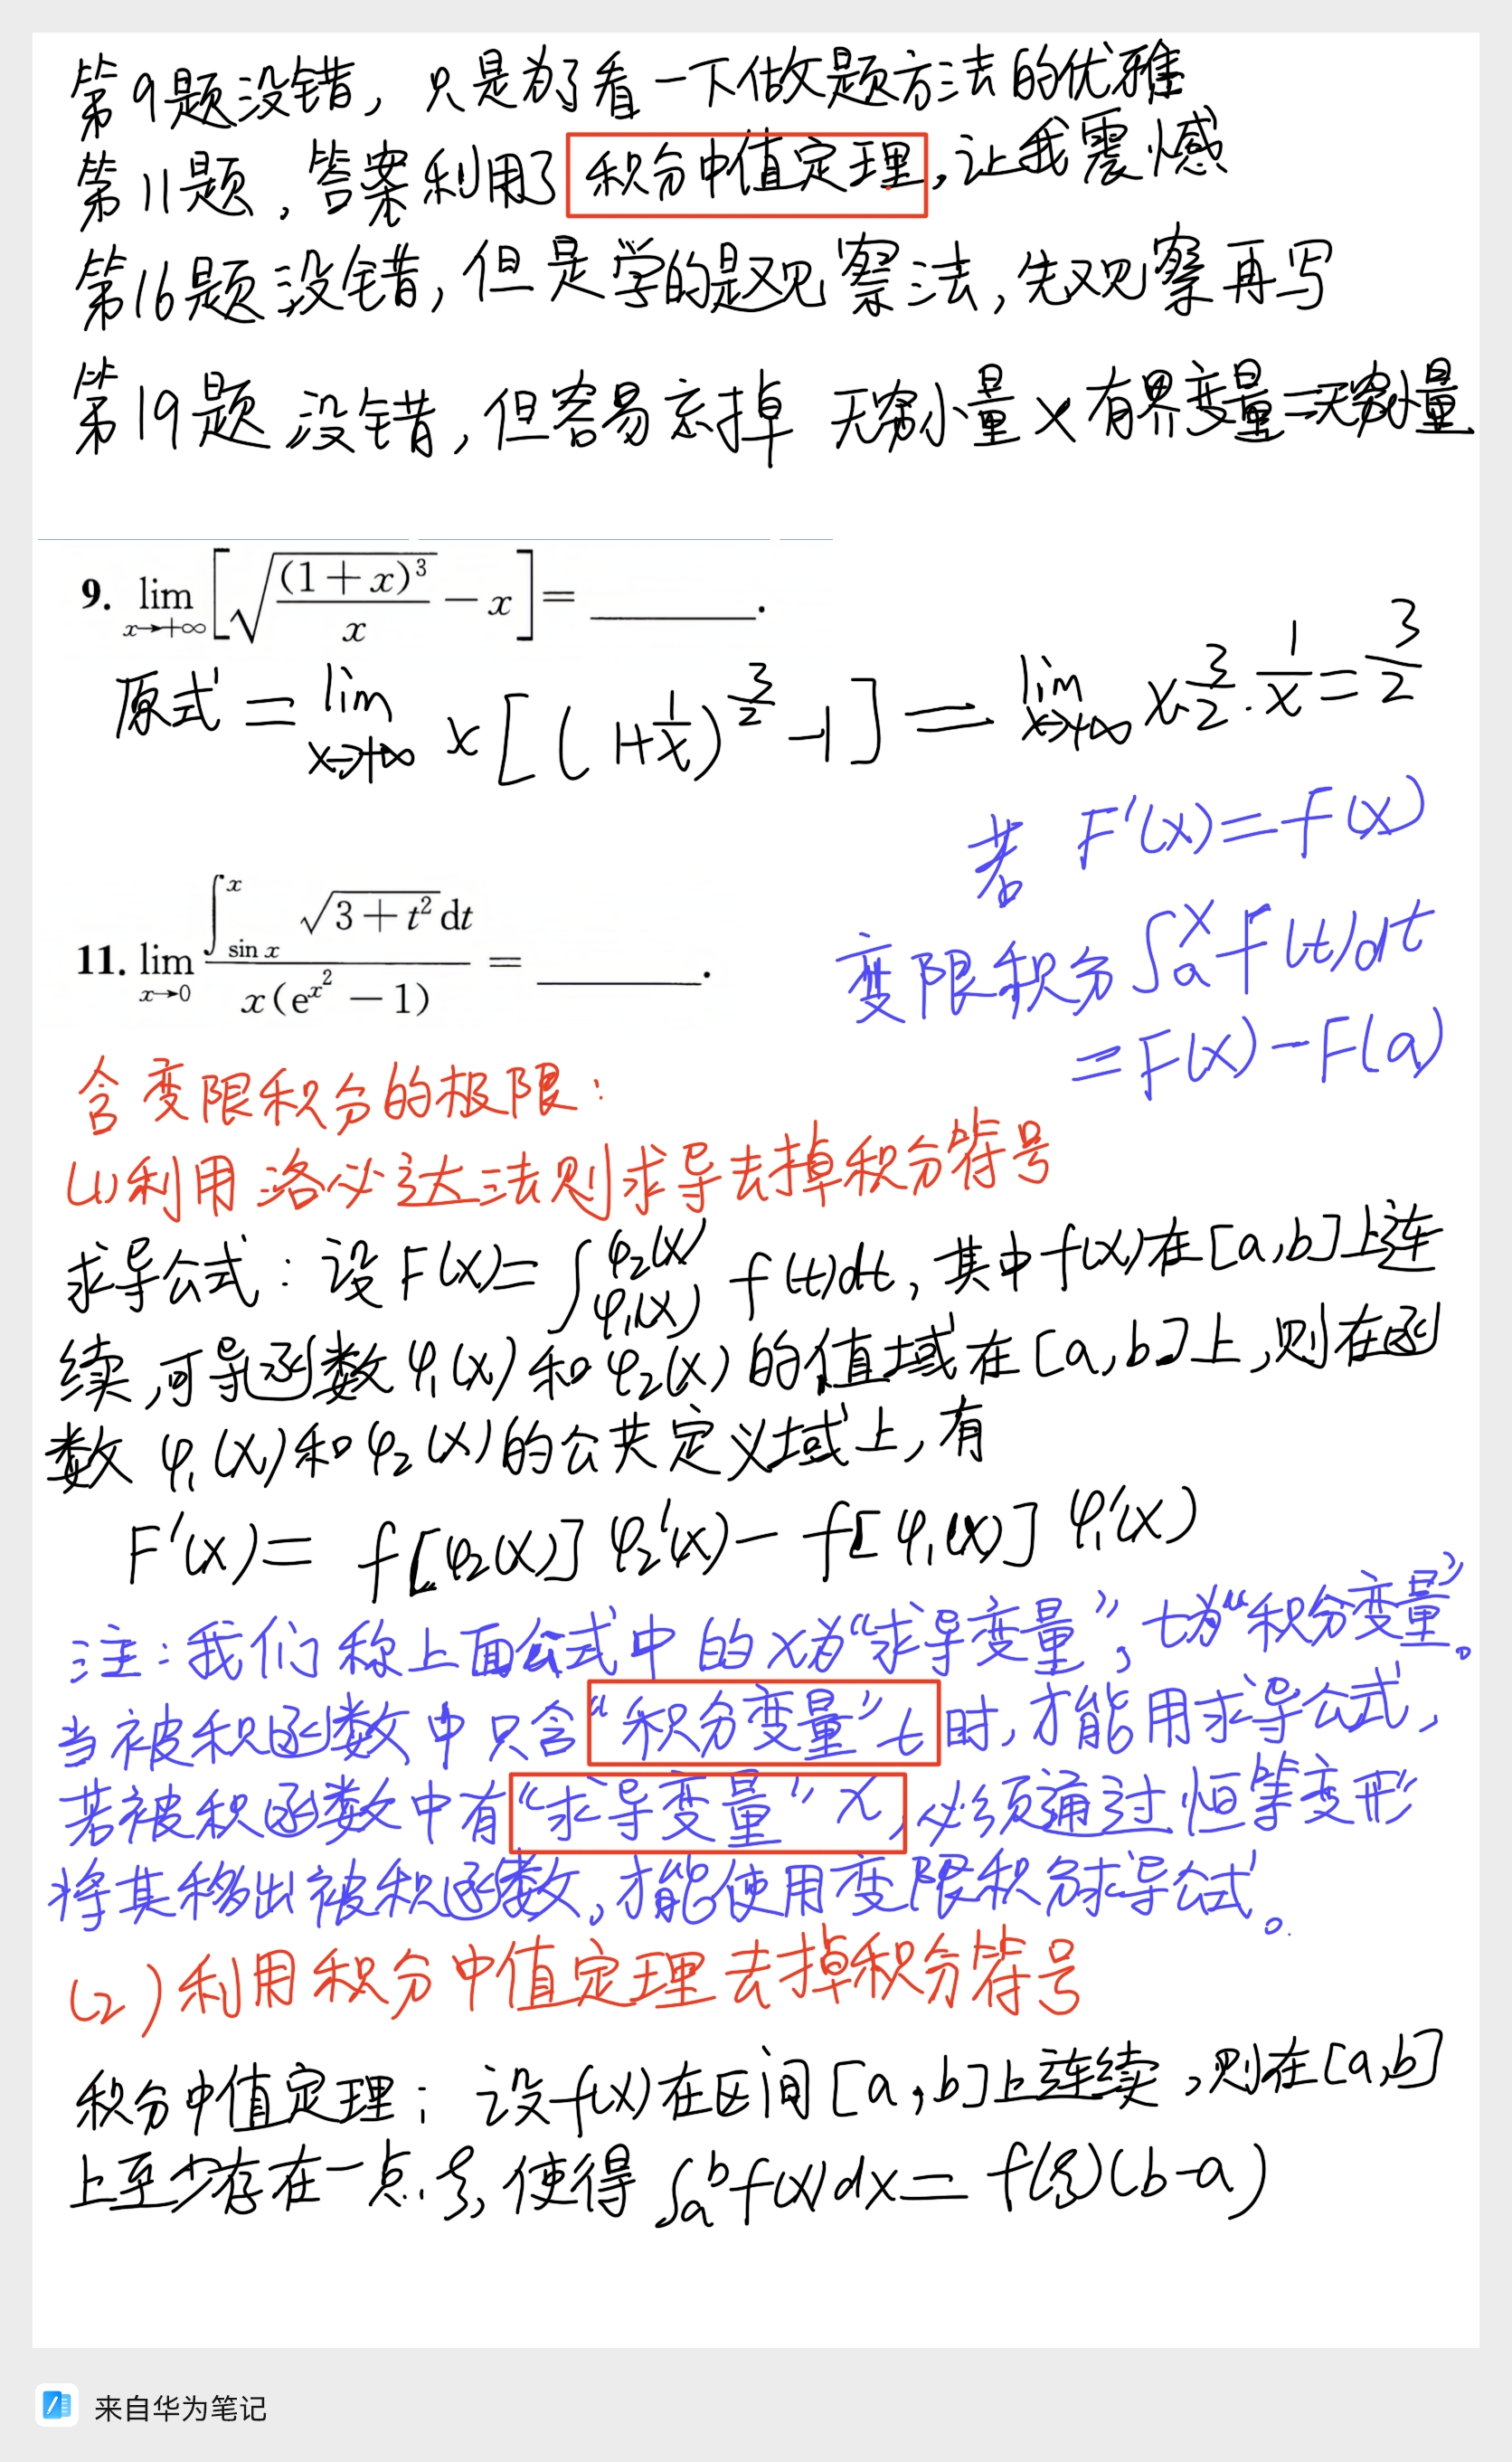 第9题没错，只是为了看一下做题方法的优雅
第11题，答案利用了积分中值定理，让我震憾
第16题没错，但是学的是观察法，先观察再写
第19题没错，但容易忘掉 无穷小量×有界变量=无穷小量
9. lim x→+∞ [√((1+x)³/x) − x] = ________.
原式 = lim x→+∞ x[(1+1/x)^(3/2) −1] = lim x→+∞ x·3/2·1/x = 3/2
若 F′(x)=f(x)
变限积分∫ₐˣ f(t)dt
=F(x)−F(a)
11. lim x→0 ∫_{sin x}^{x} √(3+t²) dt / x(e^{x²} −1) = ________.
含变限积分的极限：
(1)利用洛必达法则求导去掉积分符号
求导公式：设F(x)=∫_{φ₁(x)}^{φ₂(x)} f(t)dt，其中f(x)在[a,b]上连
续，可导函数φ₁(x)和φ₂(x)的值域在[a,b]上，则在函
数φ₁(x)和φ₂(x)的公共定义域上，有
F′(x)= f[φ₂(x)]φ₂′(x)−f[φ₁(x)]φ₁′(x)
注：我们称上面公式中的x为“求导变量”，t为“积分变量”。
当被积函数中只含“积分变量”t时，才能用求导公式，
若被积函数中有“求导变量”x，必须通过恒等变形
将其移出被积函数，才能使用变限积分求导公式。
(2)利用积分中值定理去掉积分符号
积分中值定理：设f(x)在区间[a,b]上连续，则在[a,b]
上至少存在一点ξ，使得∫ₐᵇf(x)dx=f(ξ)(b-a)
来自华为笔记